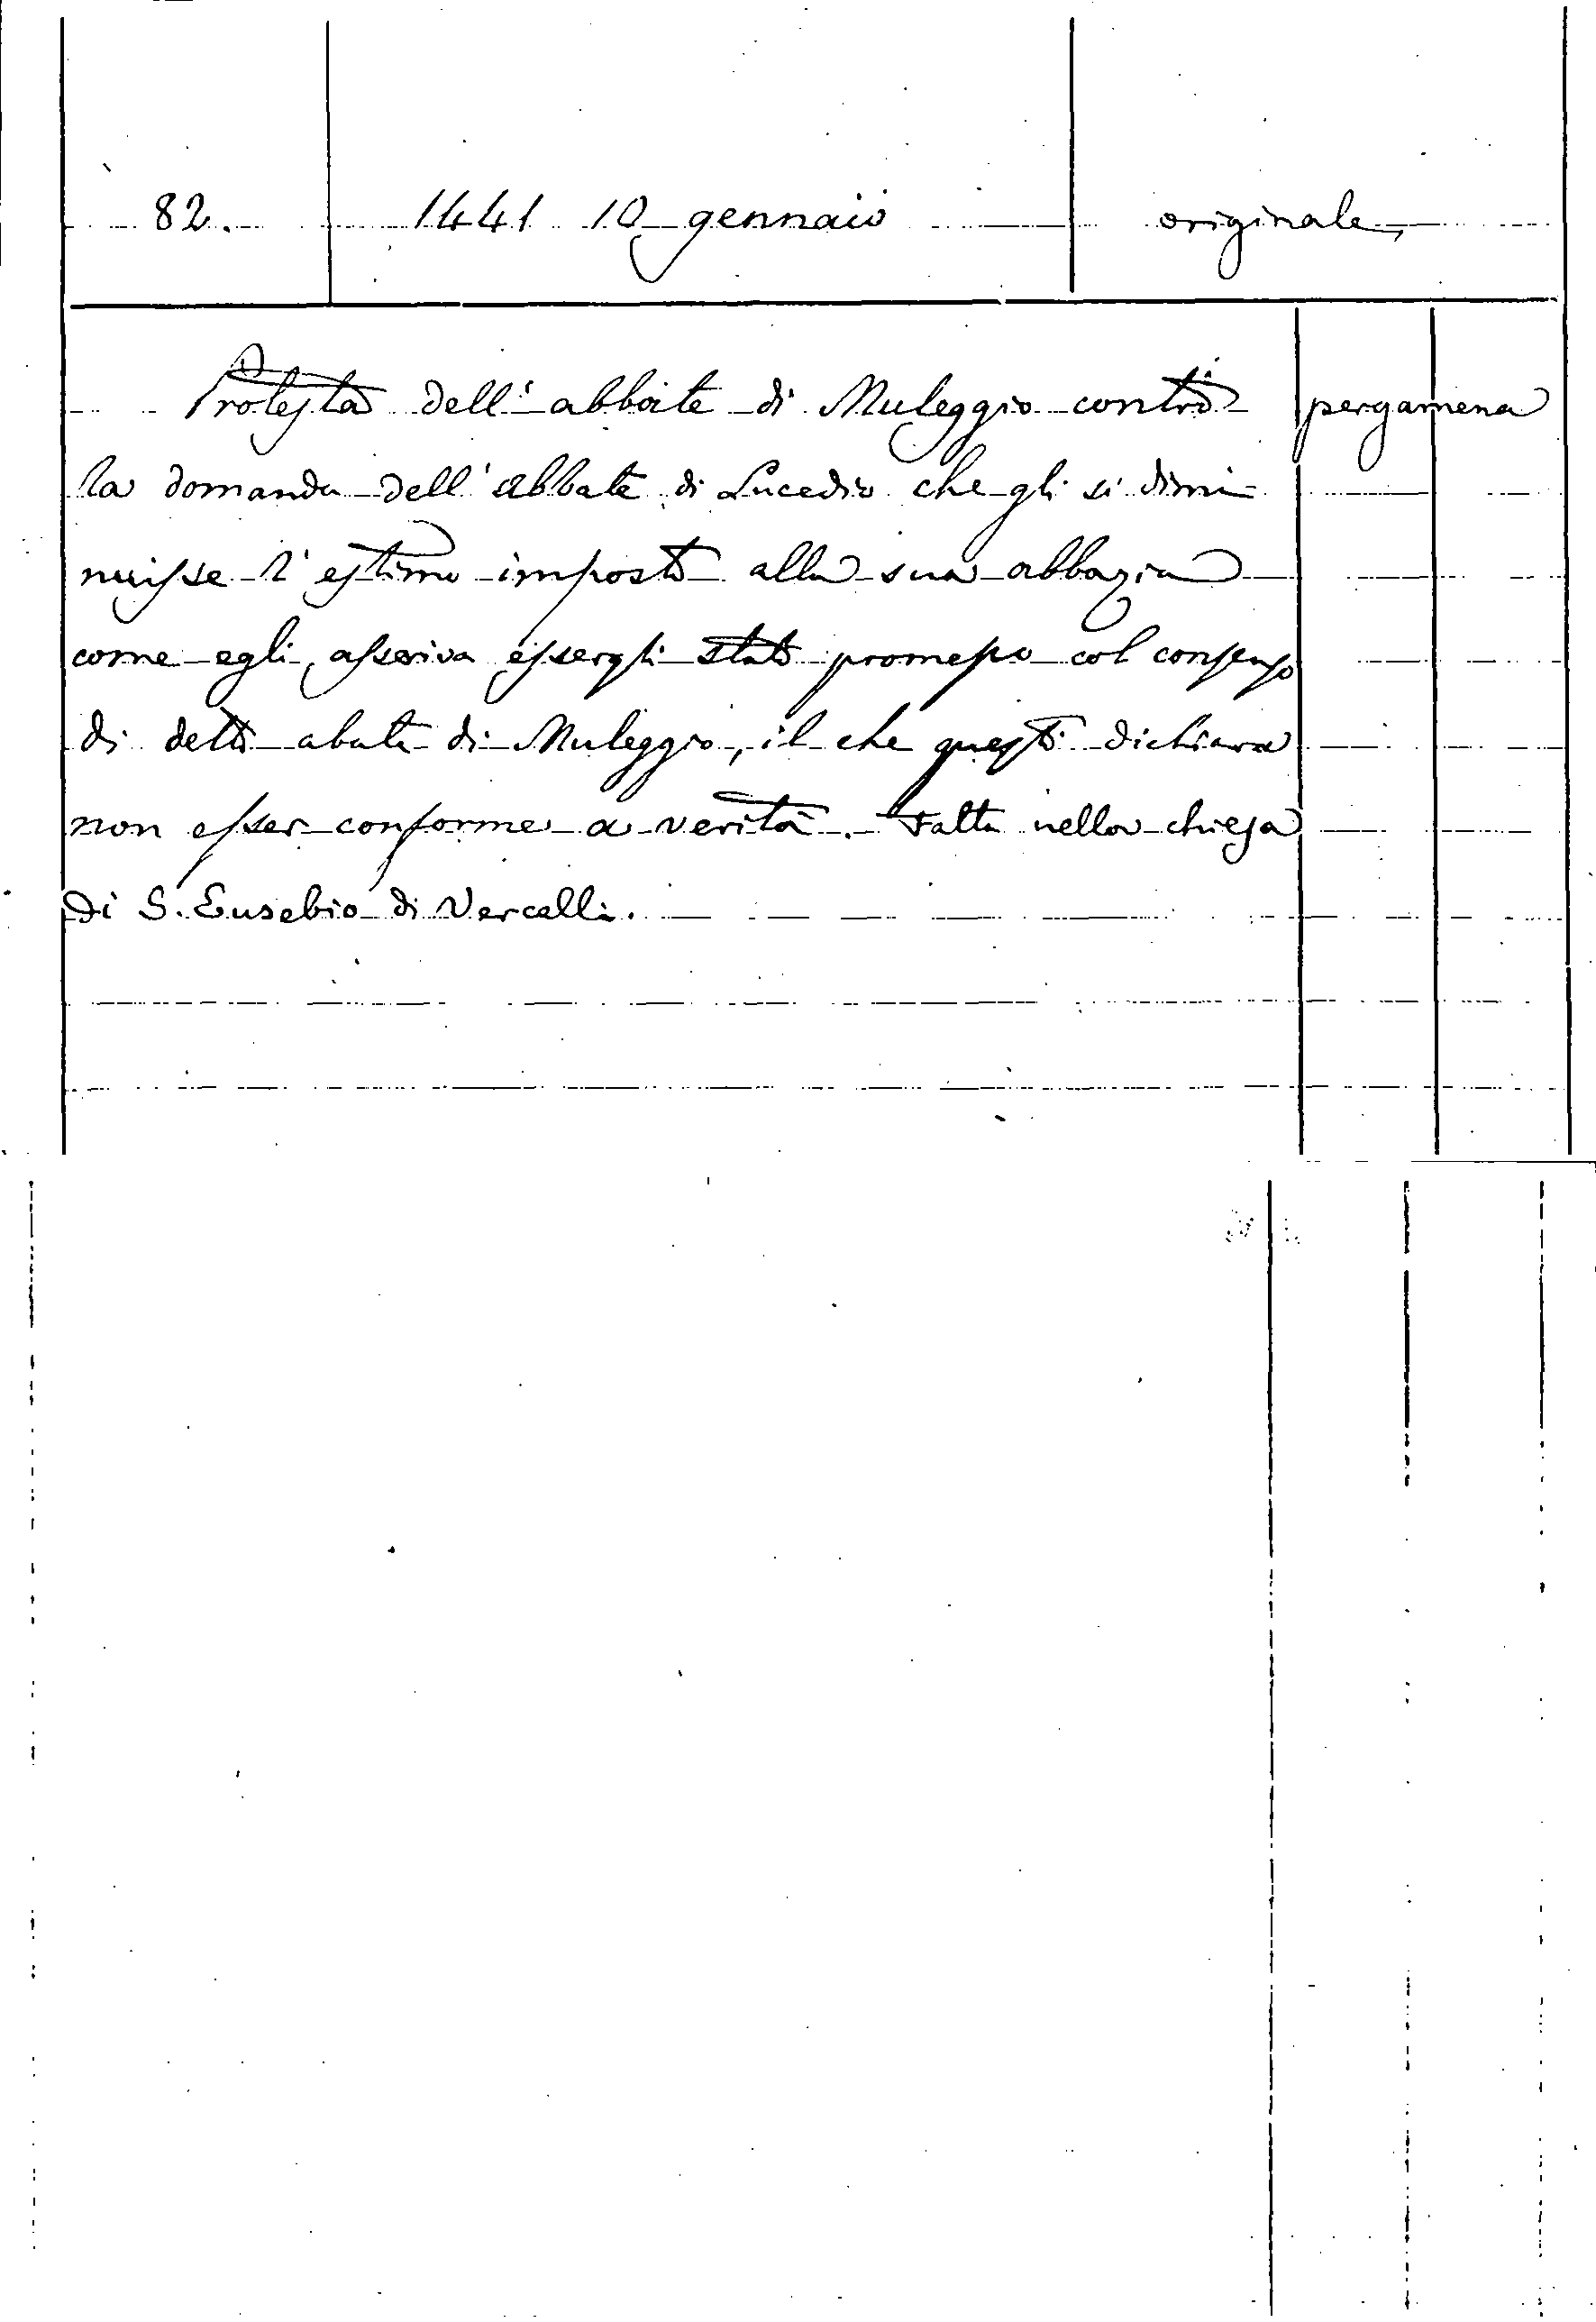 82. 1441 10 gennaio originale
Protesta dell'abbate di Muleggio contro pergamena
la domanda dell'abbate di Lucedio che gli si dimi-
nuisse l'estimo imposto alla sua abbazia
come egli asseriva essergli stato promesso col consenso
di detto abate di Muleggio, il che questi dichiara
non esser conforme a verità. Fatta nella chiesa
di S. Eusebio di Vercelli.